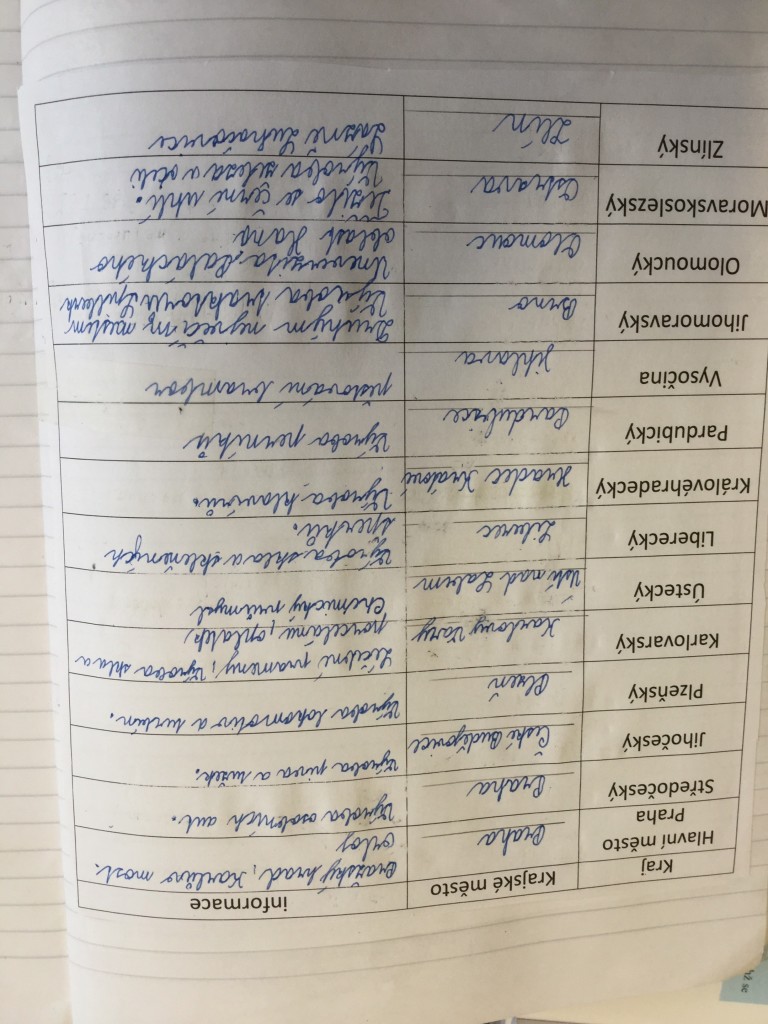 Kraj Krajské město informace
Hlavní město Praha Praha Pražský hrad, Karlův most.
orloj
Středočeský Praha Výroba osobních aut.
Jihočeský České Budějovice Výroba piva a tužek.
Plzeňský Plzeň Výroba lokomotiv a turbín.
Karlovarský Karlovy Vary Léčební prameny, výroba skla a
porcelánu, oplatek
Ústecký Ústí nad Labem Chemický průmysl
Liberecký Liberec Výroba skla a skleněných
šperků.
Královéhradecký Hradec Králové Výroba klavírů.
Pardubický Pardubice Výroba perníků
Vysočina Jihlava pěstování brambor
Jihomoravský Brno Druhým největším městem
Výroba traktorů
Olomoucký Olomouc Univerzita Palackého
oblast Haná
Moravskoslezský Ostrava Těžilo se černé uhlí.
Výroba železa a oceli
Zlínský Zlín Lázně Luhačovice